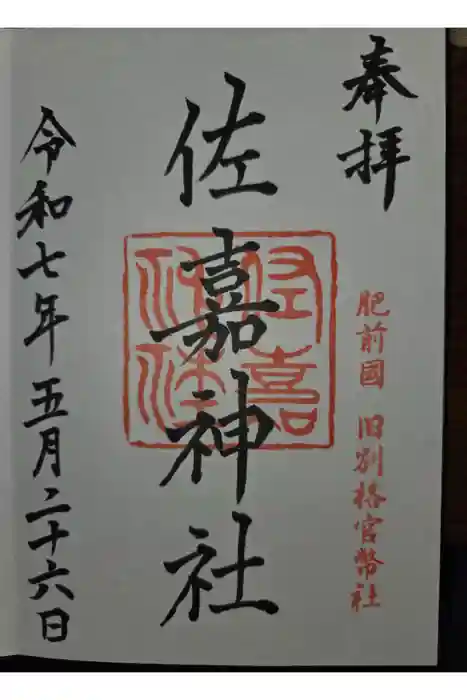 奉拝
肥前國 旧別格官幣社
佐嘉神社
令和七年五月二十六日